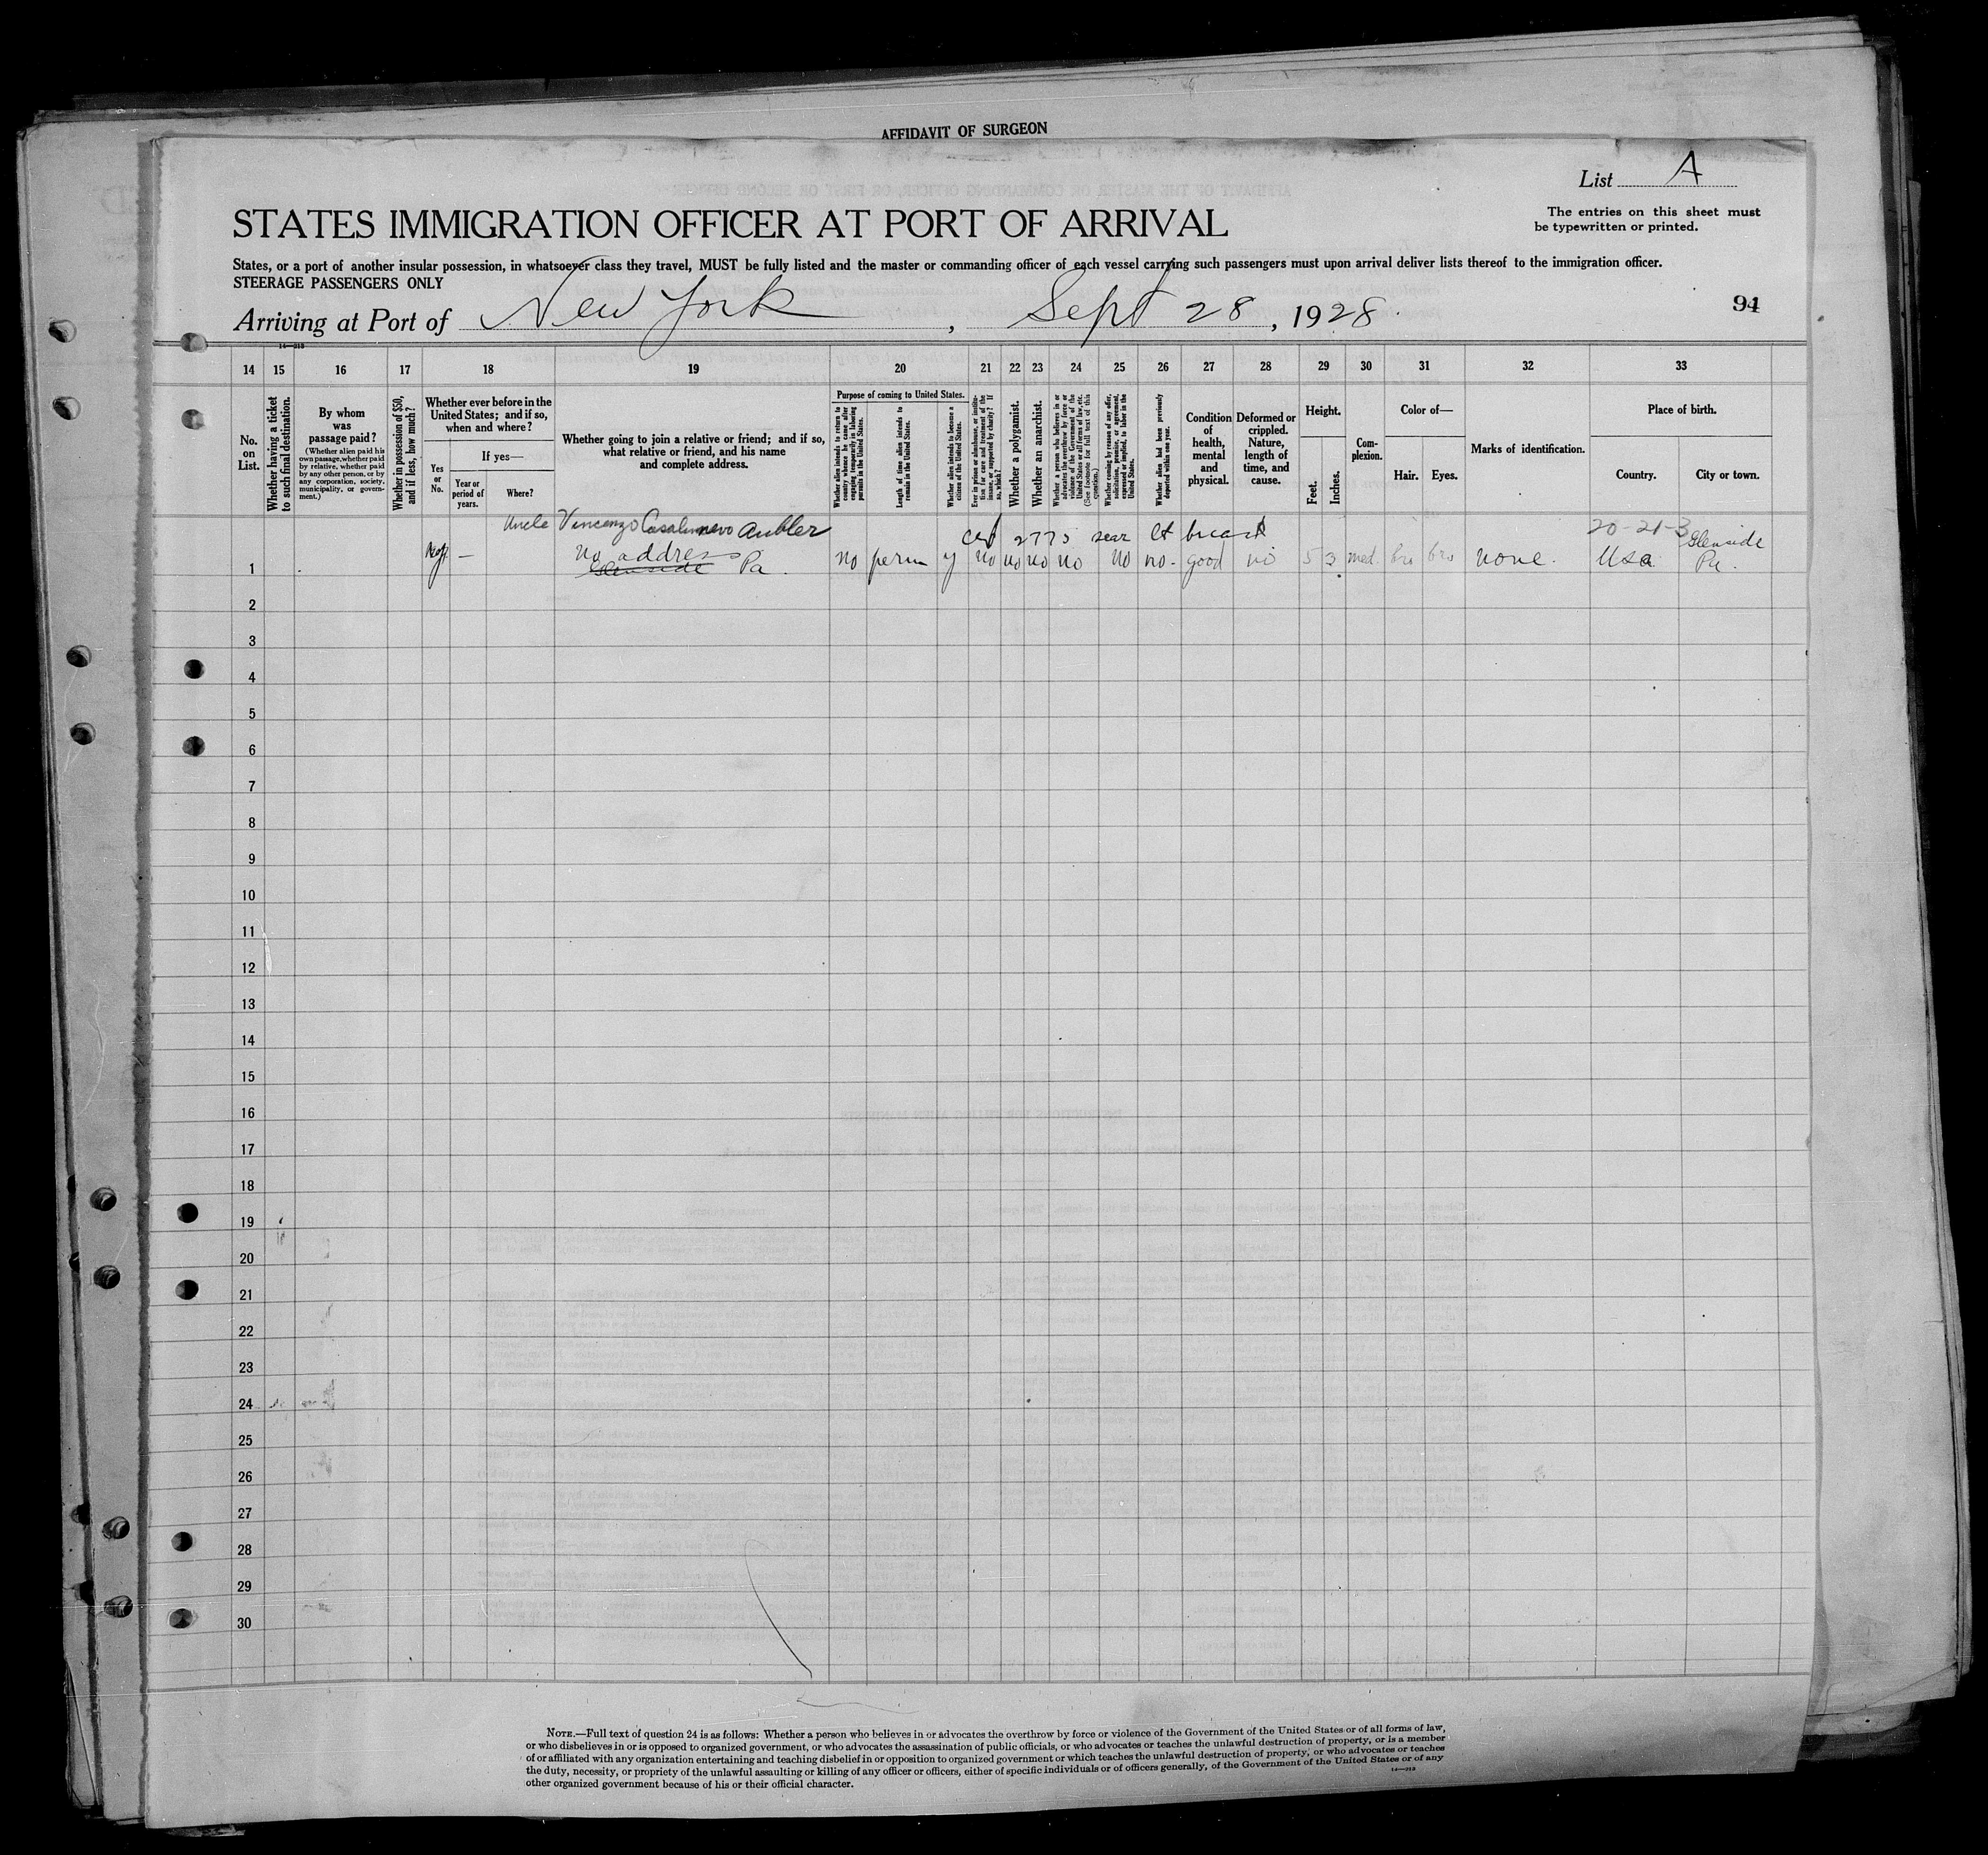 AFFIDAVIT OF SURGEON
List A
The entries on this sheet must
be typewritten or printed.
STATES IMMIGRATION OFFICER AT PORT OF ARRIVAL
States, or a port of another insular possession, in whatsoever class they travel, MUST be fully listed and the master or commanding officer of each vessel carrying such passengers must upon arrival deliver lists thereof to the immigration officer.
STEERAGE PASSENGERS ONLY
Arriving at Port of New York, Sept 28, 1928.
94
14—213
14 15 16 17 18 19 20 21 22 23 24 25 26 27 28 29 30 31 32 33
No.
on
List.
Whether having a ticket
to such final destination.
By whom
was
passage paid?
(Whether alien paid his
own passage, whether paid
by relative, whether paid
by any other person, or by
any corporation, society,
municipality, or govern-
ment.)
Whether in possession of $50,
and if less, how much?
Whether ever before in the
United States; and if so,
when and where?
Yes
or
No.
If yes—
Year or
period of
years.
Where?
Whether going to join a relative or friend; and if so,
what relative or friend, and his name
and complete address.
Purpose of coming to United States.
Whether alien intends to return to
country whence he came after
engaging temporarily in laboring
pursuits in the United States.
Length of time alien intends to
remain in the United States.
Whether alien intends to become a
citizen of the United States.
Ever in prison or almshouse, or institu-
tion for care and treatment of the
insane, or supported by charity? If
so, which?
Whether a polygamist.
Whether an anarchist.
Whether a person who believes in or
advocates the overthrow by force or
violence of the Government of the
United States or all forms of law, etc.
(See footnote for full text of this
question.)
Whether coming by reason of any offer,
solicitation, promise, or agreement,
expressed or implied, to labor in the
United States.
Whether alien had been previously
deported within one year.
Condition
of
health,
mental
and
physical.
Deformed or
crippled.
Nature,
length of
time, and
cause.
Height.
Feet.
Inches.
Com-
plexion.
Color of—
Hair.
Eyes.
Marks of identification.
Place of birth.
Country.
City or town.
Uncle Vincenzo Ambler
20-21-3
scar lt breast
Glenside
no address
1 — Glenside Pa. no perm y no no no no no no. good no 5 3 med. bro bro none. USA Pa.
2
3
4
5
6
7
8
9
10
11
12
13
14
15
16
17
18
19
20
21
22
23
24
25
26
27
28
29
30
NOTE.—Full text of question 24 is as follows: Whether a person who believes in or advocates the overthrow by force or violence of the Government of the United States or of all forms of law,
or who disbelieves in or is opposed to organized government, or who advocates the assassination of public officials, or who advocates or teaches the unlawful destruction of property, or is a member
of or affiliated with any organization entertaining and teaching disbelief in or opposition to organized government or which teaches the unlawful destruction of property, or who advocates or teaches
the duty, necessity, or propriety of the unlawful assaulting or killing of any officer or officers, either of specific individuals or of officers generally, of the Government of the United States or of any
other organized government because of his or their official character.
14—213